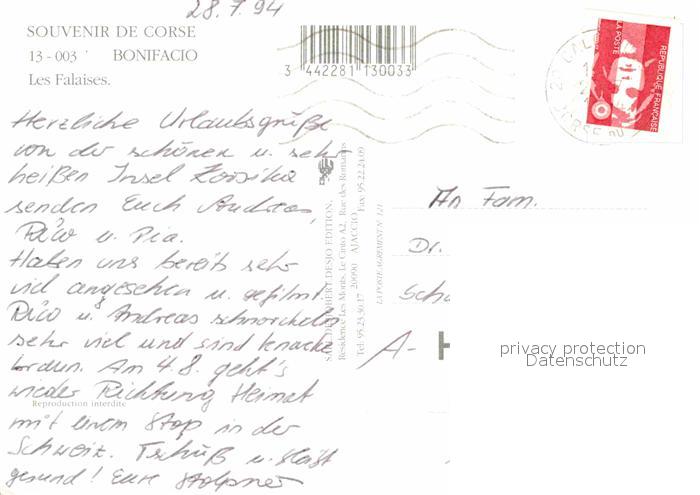 28.7.94
SOUVENIR DE CORSE
13 - 003 BONIFACIO
Les Falaises.
3 442281 130033
LA POSTE
REPUBLIQUE FRANÇAISE
Herzliche Urlaubsgrüße
von der schönen u. sehr
heißen Insel Korsika
senden Euch Andreas,
Rico u. Pia.
Haben uns bereits sehr
viel angesehen u. gefilmt.
Rico u. Andreas schnorcheln
sehr viel und sind
worden. Am 4.8. geht's
wieder Richtung Heimat
mit einem Stop in der
Schweiz. Tschüß u. bleibt
gesund! Eure
Reproduction interdite
SARL DE ROBERT DESJO EDITION,
Residence Les Monts. Le Cinto A2, Rue des Romarins
Tel: 95.23.30.17 20090 AJACCIO Fax: 95.22.24.09
LA POSTE AGREMENT N° 121
An Fam.
Dr.
Sch
A-
privacy protection
Datenschutz